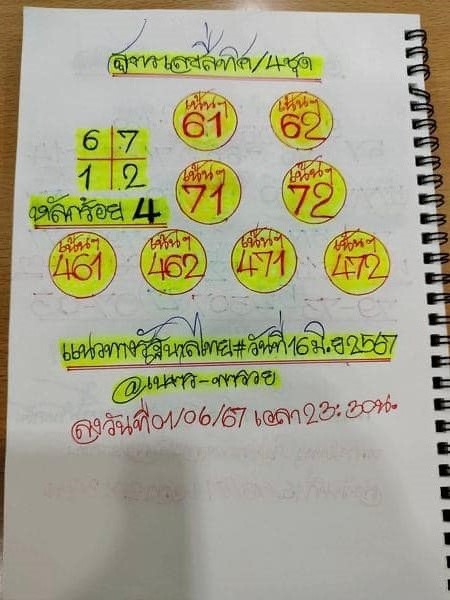 สูตรเลขสี่ทิศ/4ชุด
เน้นๆ 61
เน้นๆ 62
6 7
1 2
เน้นๆ 71
เน้นๆ 72
หลักร้อย 4
เน้นๆ 461
เน้นๆ 462
เน้นๆ 471
เน้นๆ 472
แนวทางรัฐบาลไทย#วันที่16มิ.ย2567
ลงวันที่01/06/67 เวลา23:30น.